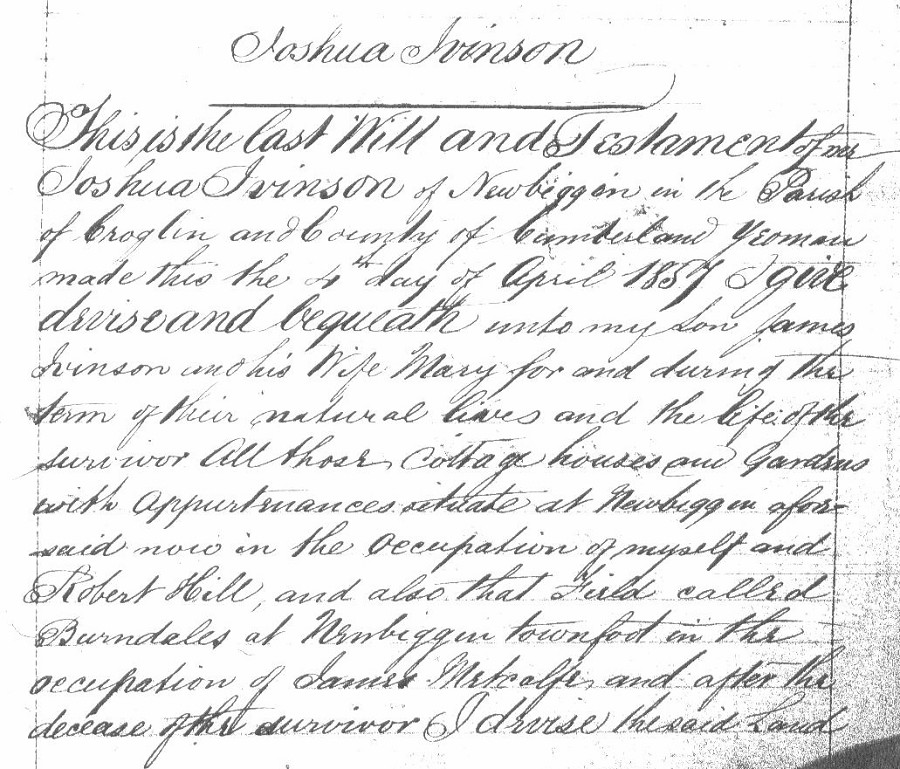 Joshua Ivinson
This is the last Will and Testament of me
Joshua Ivinson of Newbiggin in the Parish
of Croglin and County of Cumberland Yeoman
made this the 4th day of April 1857 I give
devise and bequeath unto my Son James
Ivinson and his Wife Mary for and during the
term of their natural lives and the life of the
survivor All those Cottage houses and Gardens
with Appurtenances situate at Newbiggin afore-
said now in the occupation of myself and
Robert Hill, and also that Field called
Burndales at Newbiggin townfoot in the
occupation of James Metcalfe, and after the
decease of the survivor I devise the said Land